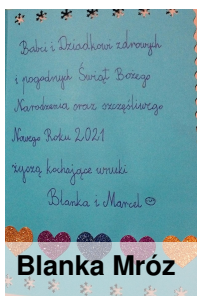 Babci i Dziadkowi zdrowych
i pogodnych Świąt Bożego
Narodzenia oraz szczęśliwego
Nowego Roku 2021
życzą kochające wnuki
Blanka i Marcel ☺
Blanka Mróz